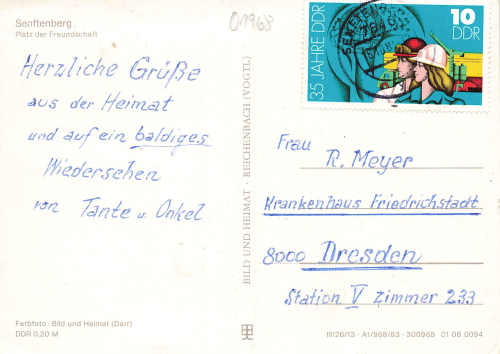 Senftenberg
Platz der Freundschaft
Herzliche Grüße
aus der Heimat
und auf ein baldiges
Wiedersehen
von Tante u. Onkel
Farbfoto: Bild und Heimat (Darr)
DDR 0,20 M
01968
BILD UND HEIMAT · REICHENBACH (VOGTL)
35 JAHRE DDR
10
DDR
Frau
R. Meyer
Krankenhaus Friedrichstadt
8000 Dresden
Station V Zimmer 233
III/26/13 - A1/968/83 - 300968 01 06 0094